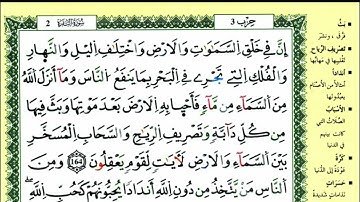 حزب 3
سورة البقرة 2
إِنَّ فِي خَلْقِ السَّمَٰوَٰتِ وَالْأَرْضِ وَاخْتِلَٰفِ الَّيْلِ وَالنَّهَارِ
وَالْفُلْكِ الَّتِي تَجْرِي فِي الْبَحْرِ بِمَا يَنفَعُ النَّاسَ وَمَا أَنزَلَ اللَّهُ
مِنَ السَّمَاءِ مِن مَّاءٍ فَأَحْيَا بِهِ الْأَرْضَ بَعْدَ مَوْتِهَا وَبَثَّ فِيهَا
مِن كُلِّ دَابَّةٍ وَتَصْرِيفِ الرِّيَٰحِ وَالسَّحَابِ الْمُسَخَّرِ
بَيْنَ السَّمَاءِ وَالْأَرْضِ لَأٓيَٰتٍ لِّقَوْمٍ يَعْقِلُونَ 164 وَمِنَ
النَّاسِ مَن يَتَّخِذُ مِن دُونِ اللَّهِ أَندَادًا يُحِبُّونَهُمْ كَحُبِّ اللَّهِ
بَثَّ
فرّق ونشر
تصريف الرياح
تقليبها في مهابها
أندادا
أمثالا من الأصنام
يعبدونها
الأسباب
كانت بينهم
في الدنيا
كرّة
إلى الدنيا
حسرات
ندامات شديدة